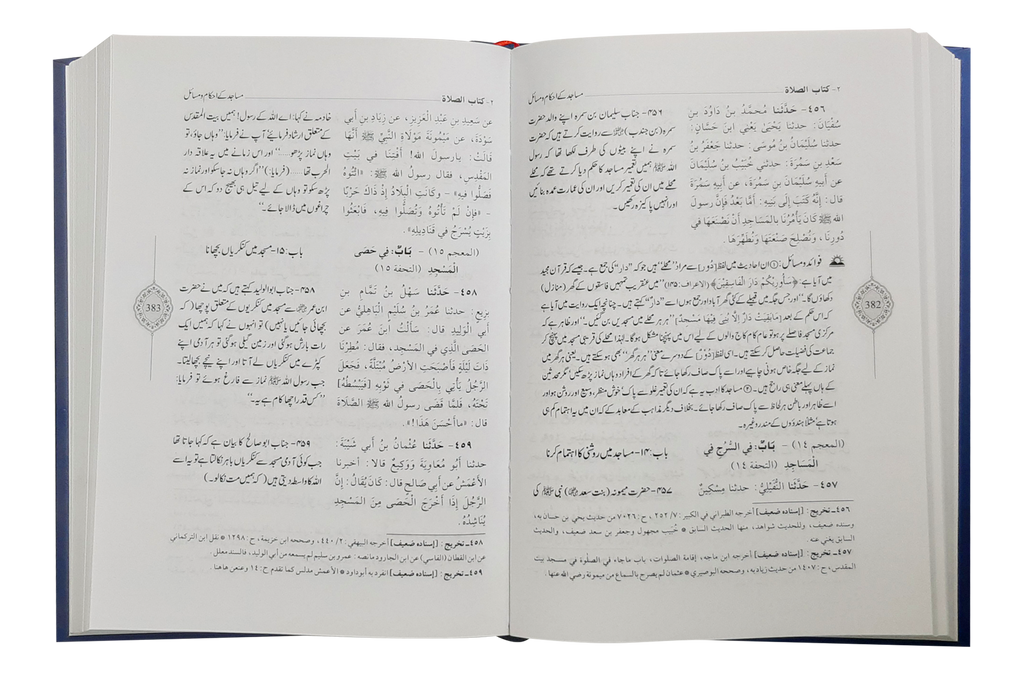 ٢- كتاب الصلاة
مساجد کے احکام و مسائل
٤٥٦- حَدَّثَنا مُحَمَّدُ بنُ دَاوُدَ بنِ
سُفْيَانَ: حدثنا يَحْيَىٰ يَعْنِي ابنَ حَسَّانَ:
حدثنا سُلَيْمَانُ بنُ مُوسَى: حدثنا جَعْفَرُ بنُ
سَعْدِ بنِ سَمُرَةَ: حدثني خُبَيْبُ بنُ سُلَيْمَانَ
عن أَبِيهِ سُلَيْمَانَ بنِ سَمُرَةَ، عن أَبِيهِ سَمُرَةَ
قال: إنَّهُ كَتَبَ إلَى بَنِيهِ: أَمَّا بَعْدُ فإنَّ رسولَ
الله ﷺ كَانَ يَأْمُرُنَا بالمَسَاجِدِ أَنْ نَصْنَعَهَا في
دُورِنَا، وَنُصْلِحَ صَنْعَتَهَا وَنُطَهِّرَهَا.
۴۵۶- جناب سلیمان بن سمرہ اپنے والد حضرت
سمرہ (بن جندب) سے روایت کرتے ہیں کہ حضرت
سمرہ نے اپنے بیٹوں کی طرف لکھا تھا کہ رسول
اللہ ﷺ ہمیں تعمیر مساجد کا حکم دیا کرتے تھے کہ
محلے میں ان کی تعمیر کریں اور ان کی عمارت عمدہ بنائیں
اور انہیں پاکیزہ رکھیں۔
فوائد و مسائل: ① ان احادیث میں لفظ [دُور] سے مراد ”محلے“ ہیں جو کہ ”دار“ کی جمع ہے۔ جیسے کہ قرآن مجید
میں آیا ہے: ﴿سَأُورِيكُمْ دَارَ الْفَاسِقِينَ﴾ (الاعراف: ۱۴۵) ”میں عنقریب تمہیں فاسقوں کے گھر (منازل)
دکھاؤں گا۔“ اور جس جگہ میں قبیلے کے کئی گھر آباد اور جمع ہوں اسے ”دار“ کہتے ہیں۔ چنانچہ ایک روایت میں آیا ہے
کہ اس حکم کے بعد [مَابَقِيَتْ دَارٌ إِلَّا بُنِيَ فِيهَا مَسْجِدٌ] ”ہر ہر محلے میں مسجدیں بن گئیں۔“ اور ظاہر ہے کہ
مرکزی مسجد فاصلے پر ہو تو عام کام کاج والوں کے لیے اس میں پہنچنا مشکل ہو گا۔ لہذا محلے کی قریبی مسجد میں پہنچ کر
جماعت کی فضیلت حاصل کر سکتے ہیں۔ اسی لفظ [دُوْرٌ] کے دوسرے معنی ”ہر ہر گھر“ بھی ہو سکتے ہیں۔ یعنی ہر گھر میں
نماز کے لیے جگہ خاص ہونی چاہیے اور اسے پاک صاف رکھا جائے تاکہ گھر کے افراد وہاں نماز پڑھ سکیں مگر محدثین
کے ہاں پہلے معنی ہی راجح ہیں۔ ② مساجد کا ادب یہ ہے کہ ان کی تعمیر غلو سے پاک، خوش منظر، وسیع اور روشن ہو اور
اسے ظاہر اور باطن ہر لحاظ سے پاک صاف رکھا جائے۔ بخلاف دیگر مذاہب کے معابد کے کہ ان میں یہ اہتمام کم ہی
ہوتا ہے مثلاً ہندوؤں کے مندر وغیرہ۔
(المعجم ١٤) - بَابٌ: فِي السُّرُجِ فِي
الْمَسَاجِدِ (التحفة ١٤)
باب: ۱۴- مساجد میں روشنی کا اہتمام کرنا
٤٥٧- حَدَّثَنا النُّفَيْلِيُّ: حدثنا مِسْكِينٌ
۴۵۷- حضرت میمونہ (بنت سعد) نبی ﷺ کی
٤٥٦- تخريج: [إسناده ضعيف] أخرجه الطبراني في الكبير: ٧/ ٢٥٢، ح: ٧٠٢٦ من حديث يحيى بن حسان به،
وسنده ضعيف، وللحديث شواهد، منها الحديث السابق * خُبَيب مجهول وجعفر بن سعد ضعيف، والحديث
السابق يغني عنه.
٤٥٧- تخريج: [إسناده ضعيف] أخرجه ابن ماجه، إقامة الصلوات، باب ماجاء في الصلٰوة في مسجد بيت
المقدس، ح: ١٤٠٧ من حديث زياد به، وصححه البوصيري * عثمان لم يصرح بالسماع من ميمونة رضي الله عنها:
382
٢- كتاب الصلاة
مساجد کے احکام و مسائل
عن سَعِيدِ بنِ عَبْدِ الْعَزِيزِ، عن زِيَادِ بنِ أَبِي
سَوْدَةَ، عن مَيْمُونَةَ مَوْلَاةِ النَّبيِّ ﷺ أَنَّهَا
قَالَتْ: يارسولَ الله! أَفْتِنَا في بَيْتِ
المَقْدِسِ، فقال رسولُ الله ﷺ: «ائْتُوهُ
فَصَلُّوا فِيهِ» - وكَانَتِ الْبِلَادُ إِذْ ذَاكَ حَرْبًا
- «فإنْ لَمْ تَأْتُوهُ وَتُصَلُّوا فِيهِ، فَابْعَثُوا
بِزَيْتٍ يُسْرَجُ في قَنَادِيلِهِ».
خادمہ نے کہا: اے اللہ کے رسول! ہمیں بیت المقدس
کے متعلق ارشاد فرمایئے آپ نے فرمایا: ”وہاں جاؤ، تو
وہاں نماز پڑھو......“ اور اس زمانے میں یہ علاقہ دار
الحرب تھا...... (فرمایا:) ”اگر وہاں نہ جا سکو اور نماز نہ
پڑھ سکو تو وہاں کے لیے تیل ہی بھیج دو کہ اس کے
چراغوں میں ڈالا جائے۔“
(المعجم ١٥) - بَابٌ: فِي حَصَى
الْمَسْجِدِ (التحفة ١٥)
باب: ۱۵- مسجد میں کنکریاں بچھانا
٤٥٨- حَدَّثَنا سَهْلُ بنُ تَمَّامِ بنِ
بَزِيعٍ: حدثنا عُمَرُ بنُ سُلَيْمٍ الْبَاهِلِيُّ عن
أَبي الْوَلِيدِ قال: سَأَلْتُ ابنَ عُمَرَ عن
الحَصَى الَّذِي في المَسْجِدِ، فقال: مُطِرْنَا
ذَاتَ لَيْلَةٍ فَأَصْبَحَتِ الأَرْضُ مُبْتَلَّةً، فَجَعَلَ
الرَّجُلُ يَأْتِي بالْحَصَى في ثَوْبِهِ [فَيَبْسُطُهُ]
تَحْتَهُ، فَلَمَّا قَضَى رسولُ الله ﷺ الصَّلَاةَ
قال: «ماأَحْسَنَ هَذَا!».
۴۵۸- جناب ابوالولید کہتے ہیں کہ میں نے حضرت
ابن عمر سے مسجد میں کنکریوں کے متعلق پوچھا (کہ
بچھائی جائیں یا نہیں) تو انہوں نے کہا کہ ہمیں ایک
رات بارش ہو گئی اور زمین گیلی ہو گئی تو ہر آدمی اپنے
کپڑے میں کنکریاں لے آتا اور اپنے نیچے بچھا لیتا۔
جب رسول اللہ ﷺ نماز سے فارغ ہوئے تو فرمایا:
”کس قدر اچھا کام ہے یہ۔“
٤٥٩- حَدَّثَنا عُثْمَانُ بنُ أَبي شَيْبَةَ:
حدثنا أَبُو مُعَاوِيَةَ وَوَكِيعٌ قالا: أخبرنا
الأَعْمَشُ عن أَبي صَالِحٍ قال: كَانَ يُقَالُ: إنَّ
الرَّجُلَ إذَا أَخْرَجَ الْحَصَى مِنَ المَسْجِدِ
يُنَاشِدُهُ.
۴۵۹- جناب ابوصالح کا بیان ہے کہ کہا جاتا تھا
جب کوئی آدمی مسجد سے کنکریاں باہر نکالتا ہے تو یہ اسے
اللہ کا واسطہ دیتی ہیں (کہ ہمیں مت نکالو)۔
٤٥٨- تخريج: [إسناده ضعيف] أخرجه البيهقي: ٢/ ٤٤٠، وصححه ابن خزيمة، ح: ١٢٩٨ * نقل ابن التركماني
عن ابن القطان (الفاسي) عن ابن الجارود مانصه: عمر و بن سليم لم يسمعه من أبي الوليد، فالسند معلل.
٤٥٩- تخريج: [إسناده ضعيف] انفرد به أبوداود * الأعمش مدلس كما تقدم ح: ١٤ وعنعن هاهنا.
383